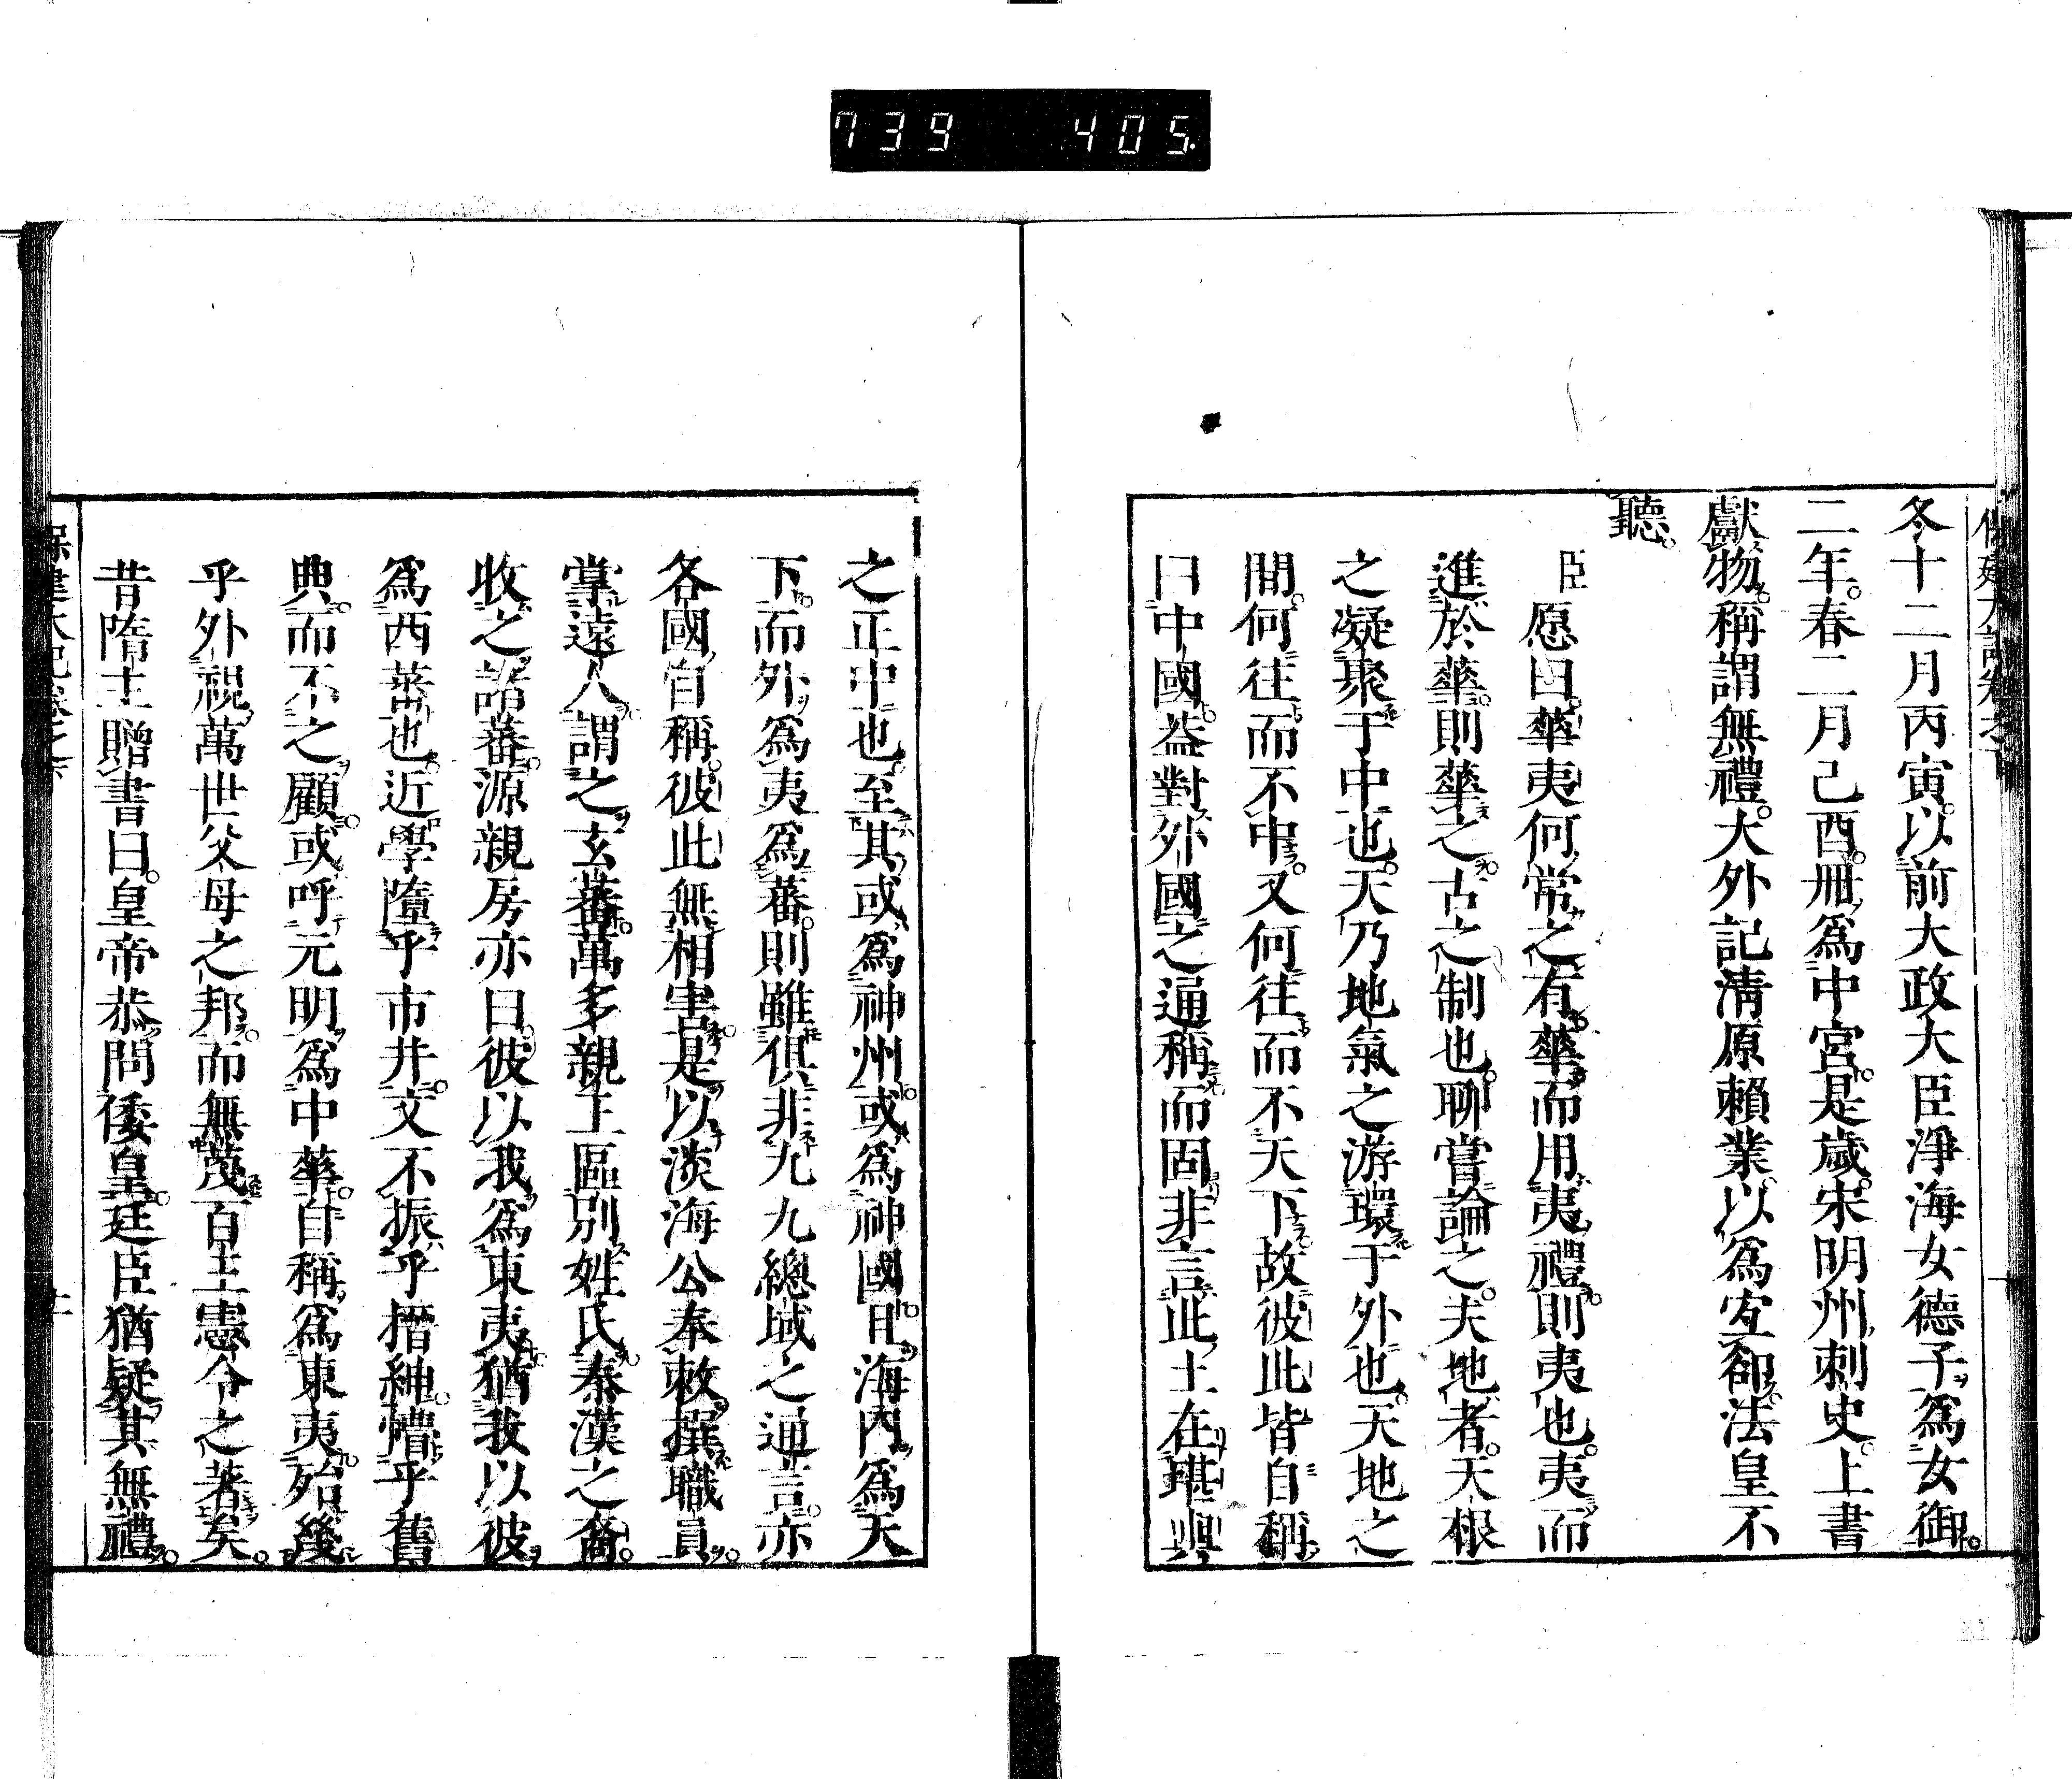 739 405.
冬十二月丙寅。以前大政大臣淨海女德子爲女御。
二年。春二月己酉。冊爲中宮。是歲。宋明州刺史。上書
獻物。稱謂無禮。大外記淸原賴業。以爲宜卻。法皇不
聽。
臣愿曰。華夷何常之有。華而用夷禮。則夷也。夷而
進於華。則華之。古之制也。聊嘗論之。夫地者。天根
之凝聚于中也。天乃地氣之游環于外也。天地之
間。何往而不中。又何往而不天下。故彼此皆自稱
曰中國。葢對外國之通稱。而固非言此土在堪輿
之正中也。至其或爲神州。或爲神國。且海內爲天
下。而外爲夷爲蕃。則雖俱非九九總域之通言。亦
各國自稱。彼此無相害。是以淡海公奉敕撰職員。
掌遠人謂之玄蕃。萬多親王區別姓氏。秦漢之裔。
收之諸蕃。源親房亦曰。彼以我爲東夷。猶我以彼
爲西蕃也。近學墮乎市井。文不振乎搢紳。懵乎舊
典。而不之顧。或呼元明爲中華。自稱爲東夷。殆幾
乎外視萬世父母之邦。而無蔑百王憲令之著矣。
昔隋主贈書曰。皇帝恭問倭皇。廷臣猶疑其無禮。
保建大記卷之下